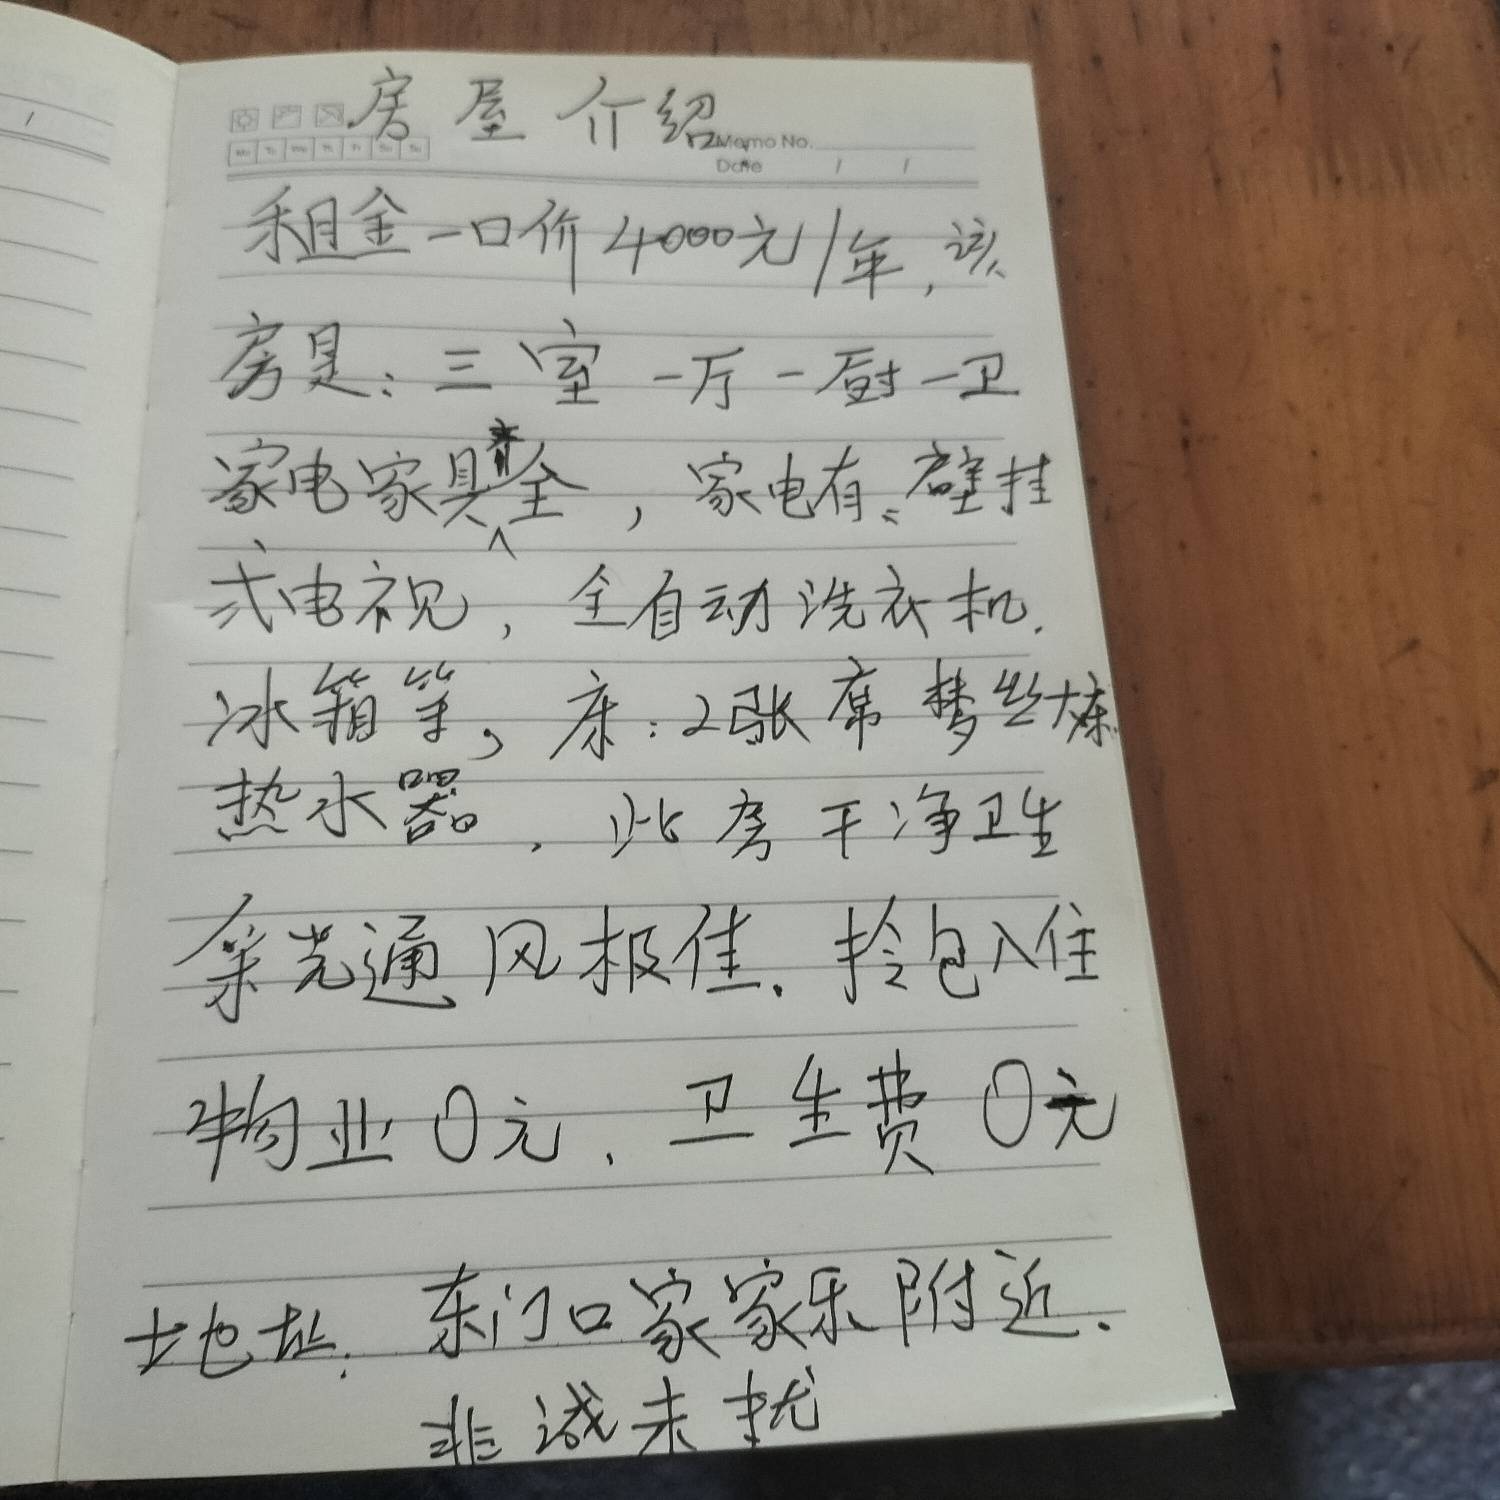 房屋介绍
Memo No.
Mo Tu We Th Fr Sa Su
Date / /
租金一口价4000元/年,该
房是:三室一厅一厨一卫
家电家具齐全,家电有:壁挂
式电视,全自动洗衣机.
冰箱等,床:2张席梦丝
热水器.此房干净卫生
采光通风极佳.拎包入住
物业0元.卫生费0元
地址:东门口家家乐附近.
非诚未扰